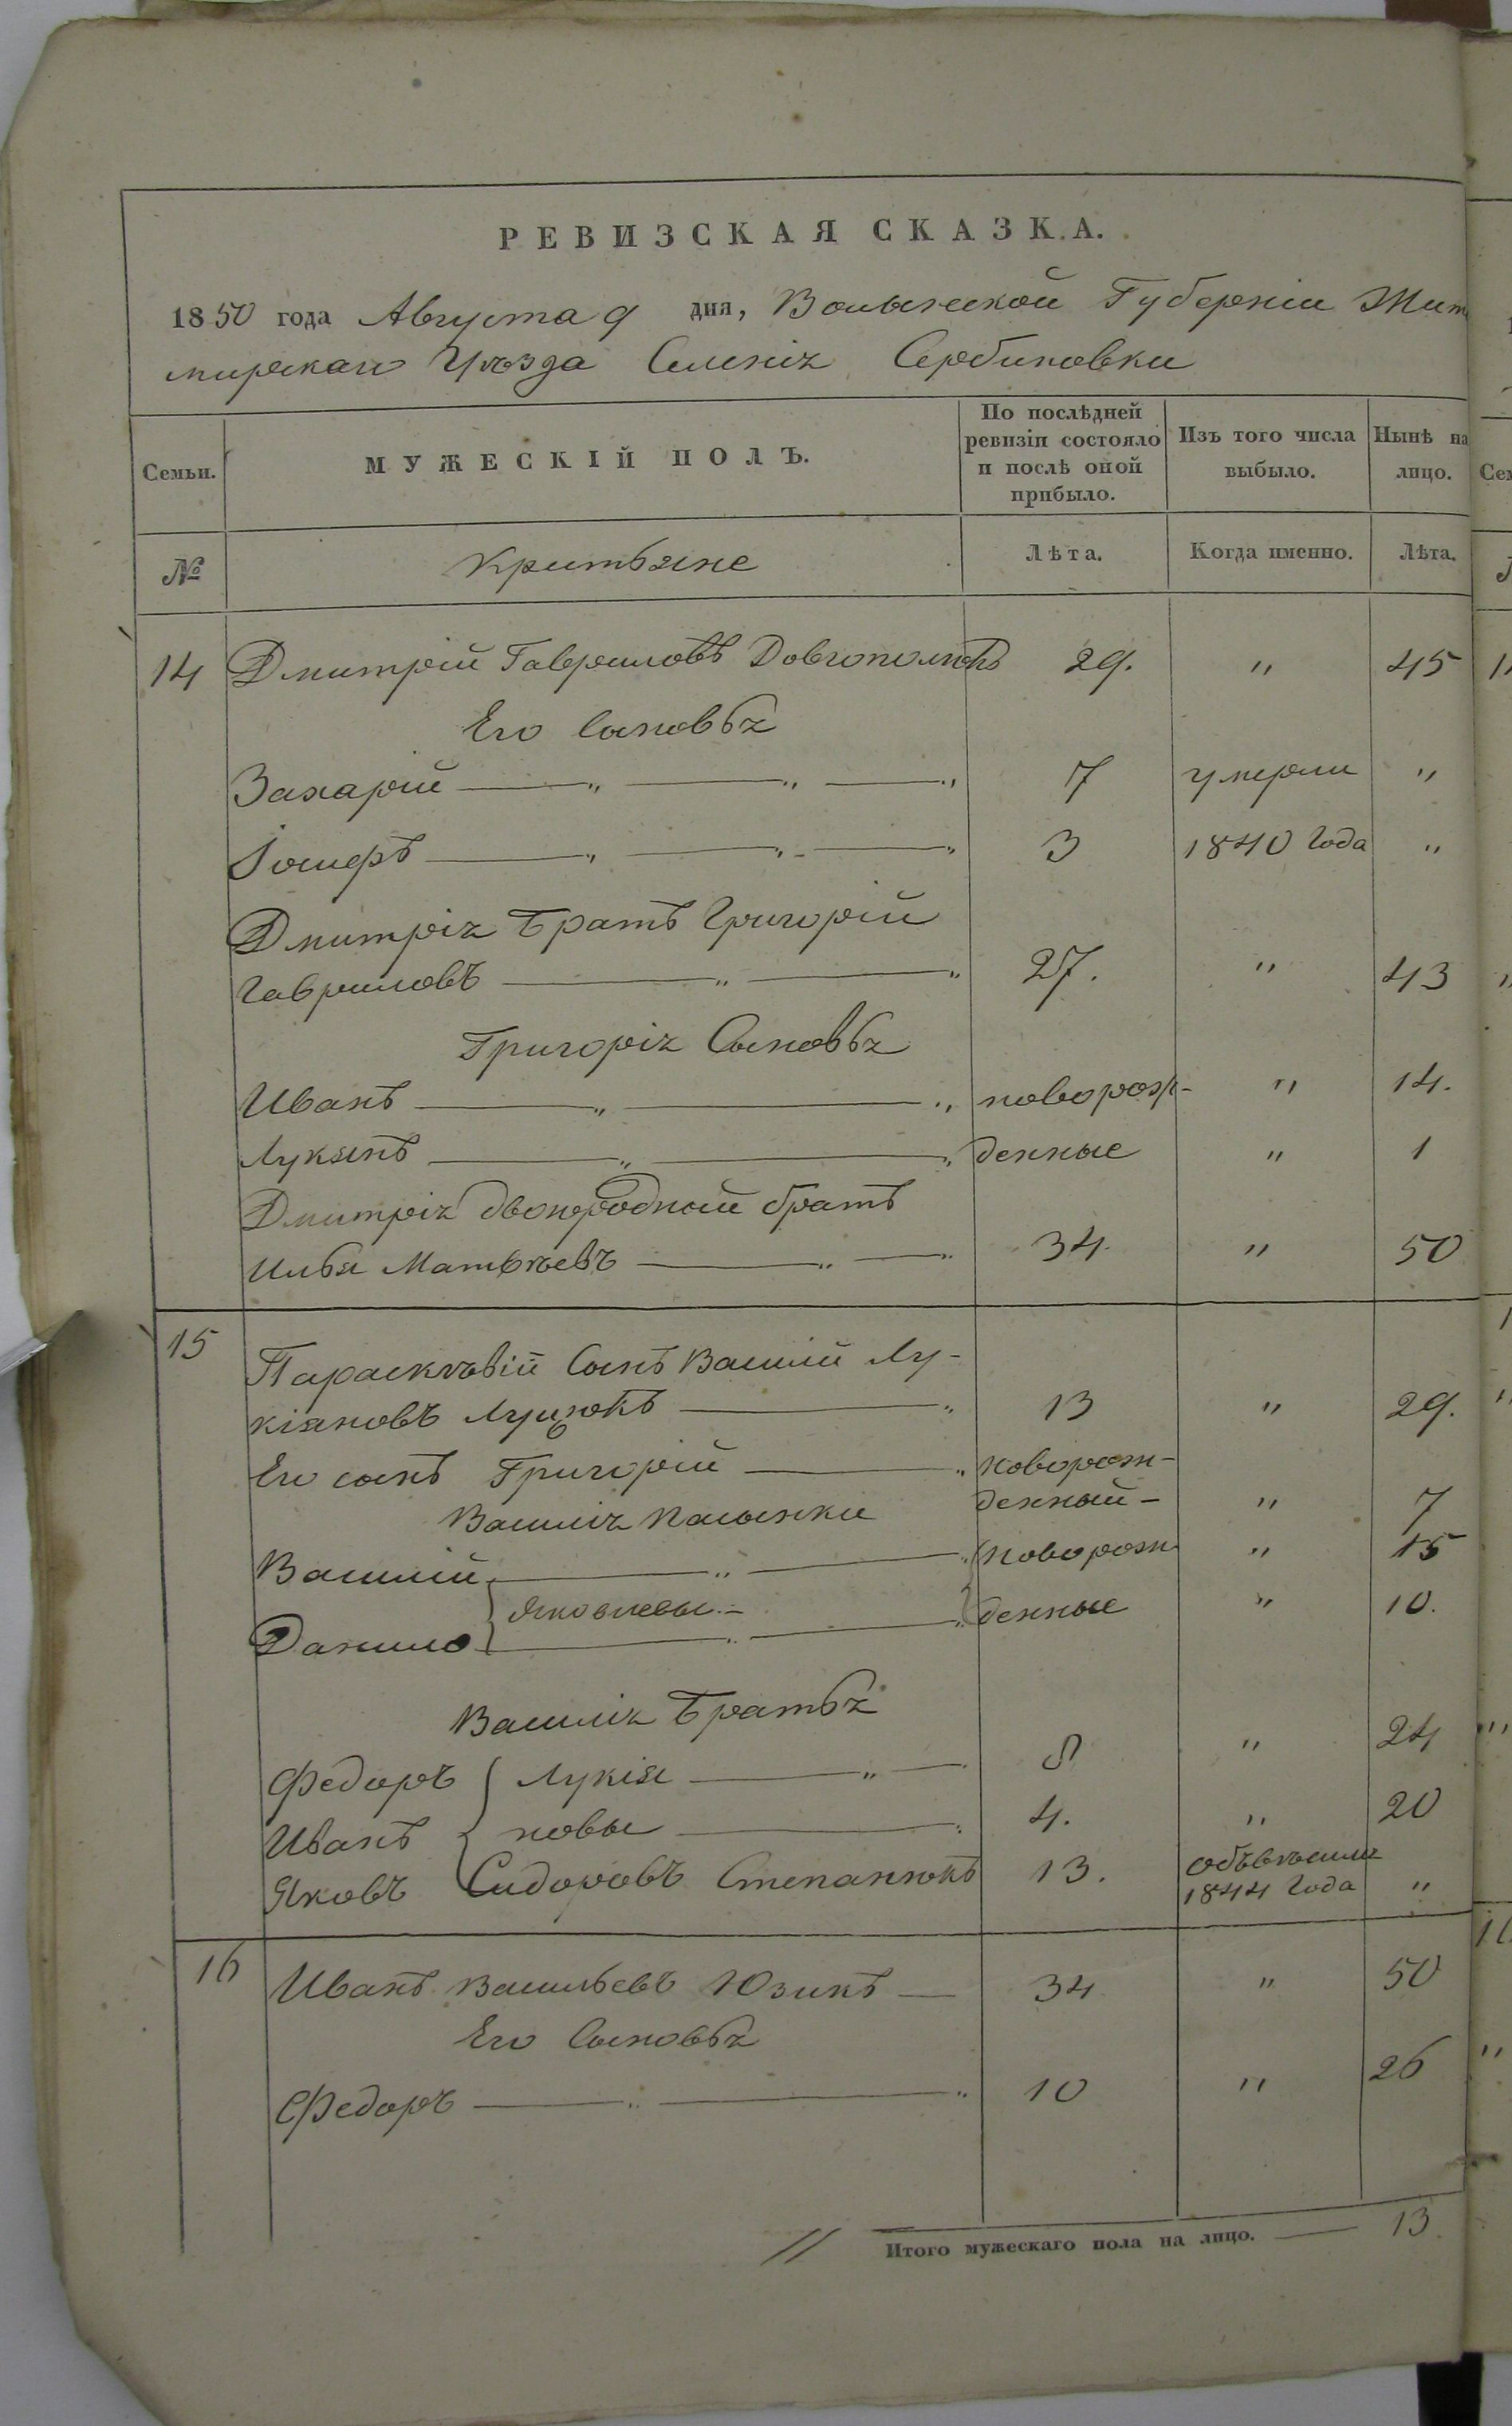 РЕВИЗСКАЯ СКАЗКА.
1850 года Августа 9 дня, Волынской Губерніи Жит
мирскаго Уѣзда Селенія Сербиновки
Семьи. МУЖЕСКІЙ ПОЛЪ. По послѣдней ревизіи состояло и послѣ оной прибыло. Изъ того числа выбыло. Нынѣ на лицо.
№ Крестьяне Лѣта. Когда именно. Лѣта.
14 Дмитрій Гавриловъ Довгополюкъ 29. " 45
Его Сыновья
Захарій — " — " — " 7 умерли "
Іосифъ — " — " — " 3 1840 Года "
Дмитрія Братъ Григорій
Гавриловъ — " — " 27. " 43
Григорія Сыновья
Иванъ — " — " новорож- " 14.
Лукянъ — " — " денные " 1
Дмитрія двоюродный братъ
Илья Матвѣевъ — " — " 34. " 50
15 Параскѣвій Сынъ Василій Лу-
кіяновъ Луцюкъ — " 13 " 29.
Его сынъ Григорій — " новорож-
Василія Пасынки денный - " 7
Василій — " — " новорож " 15
Яковлевы -
Данило — " — " денные " 10.
Василія Братья
Федоръ Лукія — " — 8 " 24
Иванъ новы — " 4. " 20
Яковъ Сидоровъ Степанюкъ 13. 1844 Года "
16 Иванъ Васильевъ Юзикъ — 34 " 50
Его Сыновья
Федоръ — " — " 10 " 26
Итого мужескаго пола на лицо. — 13